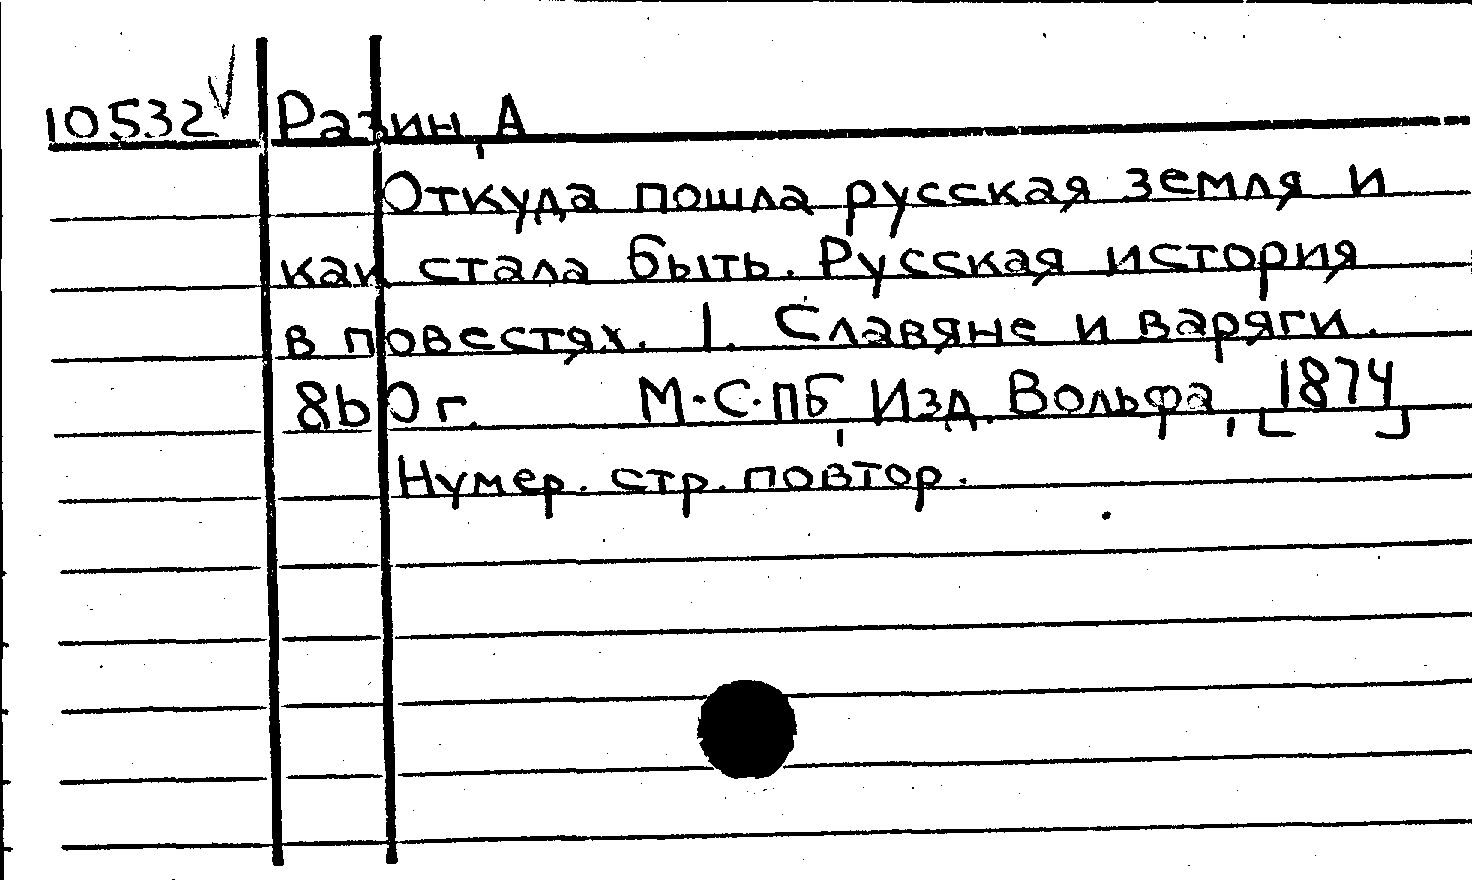 10532 Разин, А
Откуда пошла русская земля и
как стала быть. Русская история
в повестях. 1. Славяне и варяги.
860 г. М.-С.ПБ, Изд. Вольфа, [1874]
Нумер. стр. повтор.